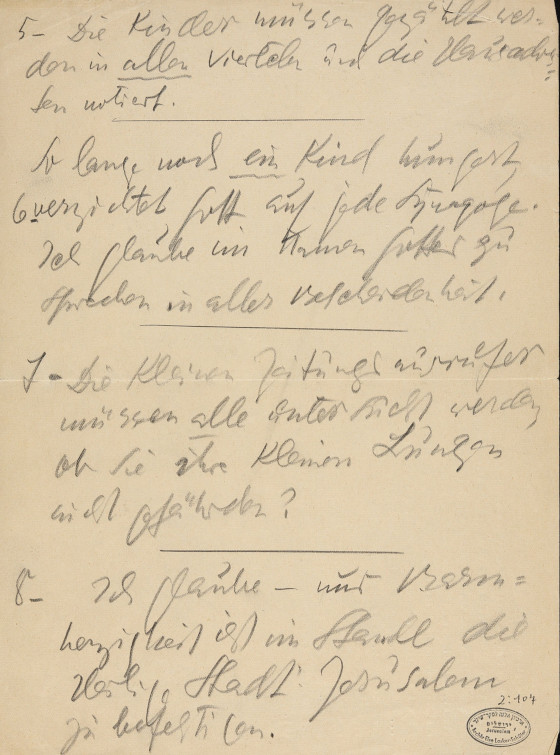 5- Die Kinder müssen gezählt wer=
den in allen Vierteln und die Hausadres=
sen notiert.
So lange noch ein Kind hungert,
6- verzichtet Gott auf jede Synagoge.
Ich glaube im Namen Gottes zu
sprechen in aller Bescheidenheit.
7- Die kleinen Zeitungsausrufer
müssen alle untersucht werden
ob sie ihre kleinen Lungen
nicht gefährden?
8- Ich glaube - nur Barm=
herzigkeit ist im Stande die
Heilige Stadt: Jerusalem
zu befestigen.
2:104